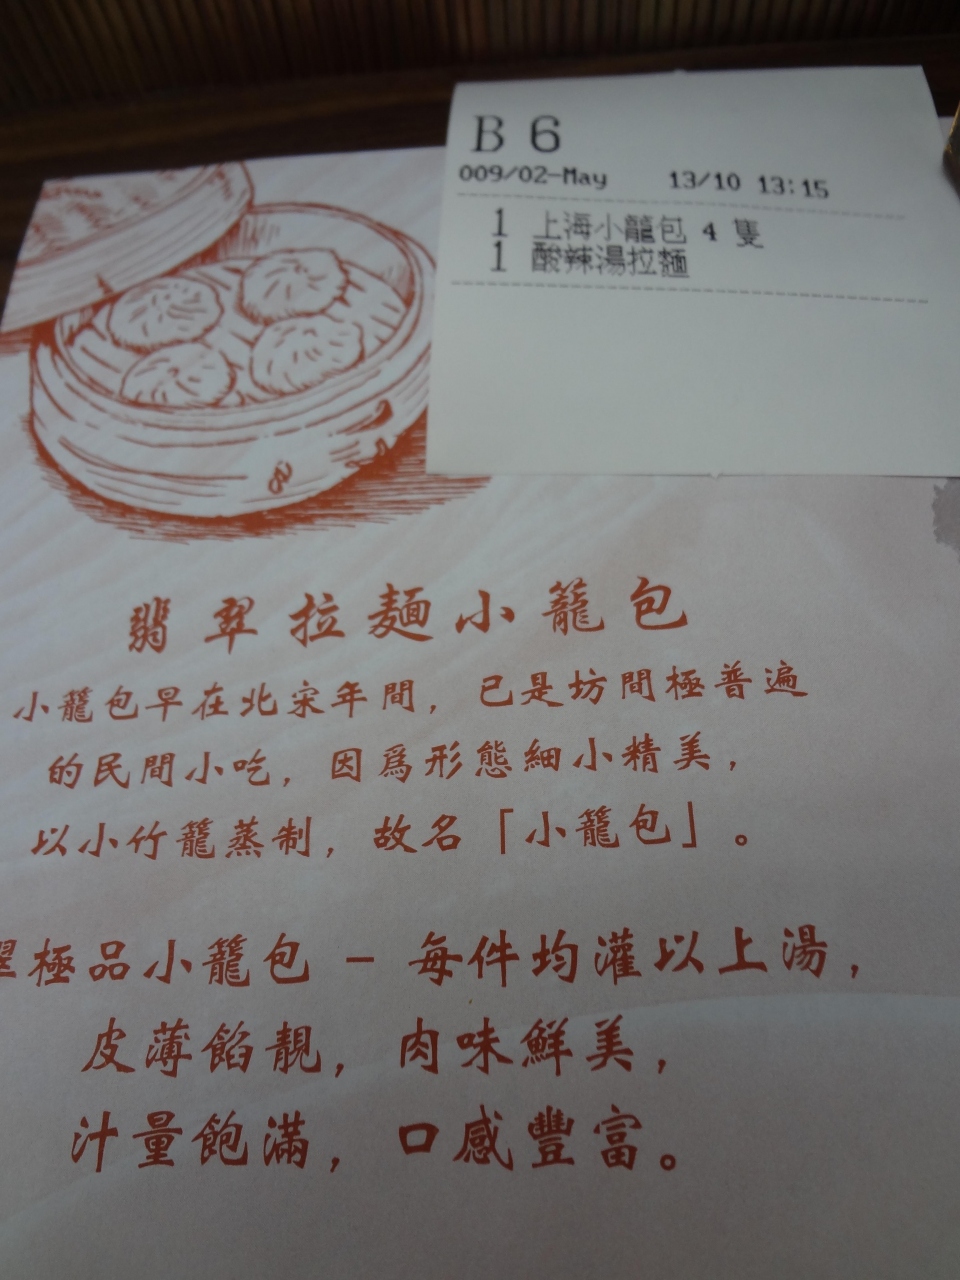 B 6
009/02-May 13/10 13:15
1 上海小籠包 4 隻
1 酸辣湯拉麵
翡翠拉麵小籠包
小籠包早在北宋年間，已是坊間極普遍
的民間小吃，因為形態細小精美，
以小竹籠蒸制，故名「小籠包」。
翠極品小籠包 – 每件均灌以上湯，
皮薄餡靚，肉味鮮美，
汁量飽滿，口感豐富。